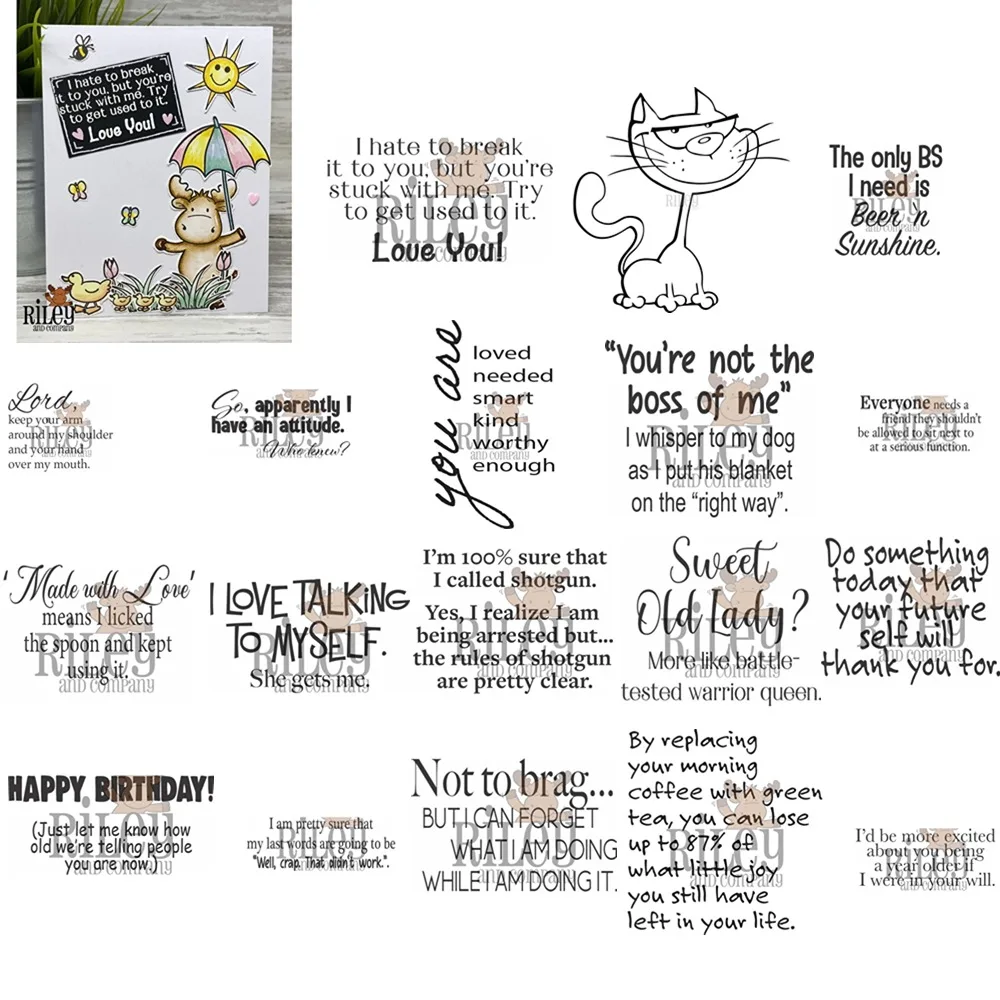 I hate to break
it to you, but you're
stuck with me. Try
to get used to it.
Love You!
RILEY
AND COMPANY
I hate to break
it to you, but you're
stuck with me. Try
to get used to it.
Love You!
RILEY
AND COMPANY
RILEY
The only BS
I need is
Beer 'n
Sunshine.
RILEY
AND COMPANY
Lord,
keep your arm
around my shoulder
and your hand
over my mouth.
RILEY
AND COMPANY
So, apparently I
have an attitude.
Who knew?
RILEY
AND COMPANY
you are
loved
needed
smart
kind
worthy
enough
RILEY
AND COMPANY
"You're not the
boss of me"
I whisper to my dog
as I put his blanket
on the "right way".
RILEY
AND COMPANY
Everyone needs a
friend they shouldn't
be allowed to sit next to
at a serious function.
RILEY
AND COMPANY
'Made with Love'
means I licked
the spoon and kept
using it.
RILEY
AND COMPANY
I LOVE TALKING
TO MYSELF.
She gets me.
RILEY
AND COMPANY
I'm 100% sure that
I called shotgun.
Yes, I realize I am
being arrested but...
the rules of shotgun
are pretty clear.
RILEY
AND COMPANY
Sweet
Old Lady?
More like battle-
tested warrior queen.
RILEY
AND COMPANY
Do something
today that
your future
self will
thank you for.
RILEY
AND COMPANY
HAPPY BIRTHDAY!
(Just let me know how
old we're telling people
you are now.)
RILEY
AND COMPANY
I am pretty sure that
my last words are going to be
"Well, crap. That didn't work.".
RILEY
AND COMPANY
Not to brag...
BUT I CAN FORGET
WHAT I AM DOING
WHILE I AM DOING IT.
RILEY
AND COMPANY
By replacing
your morning
coffee with green
tea, you can lose
up to 87% of
what little joy
you still have
left in your life.
RILEY
AND COMPANY
I'd be more excited
about you being
a year older if
I were in your will.
RILEY
AND COMPANY